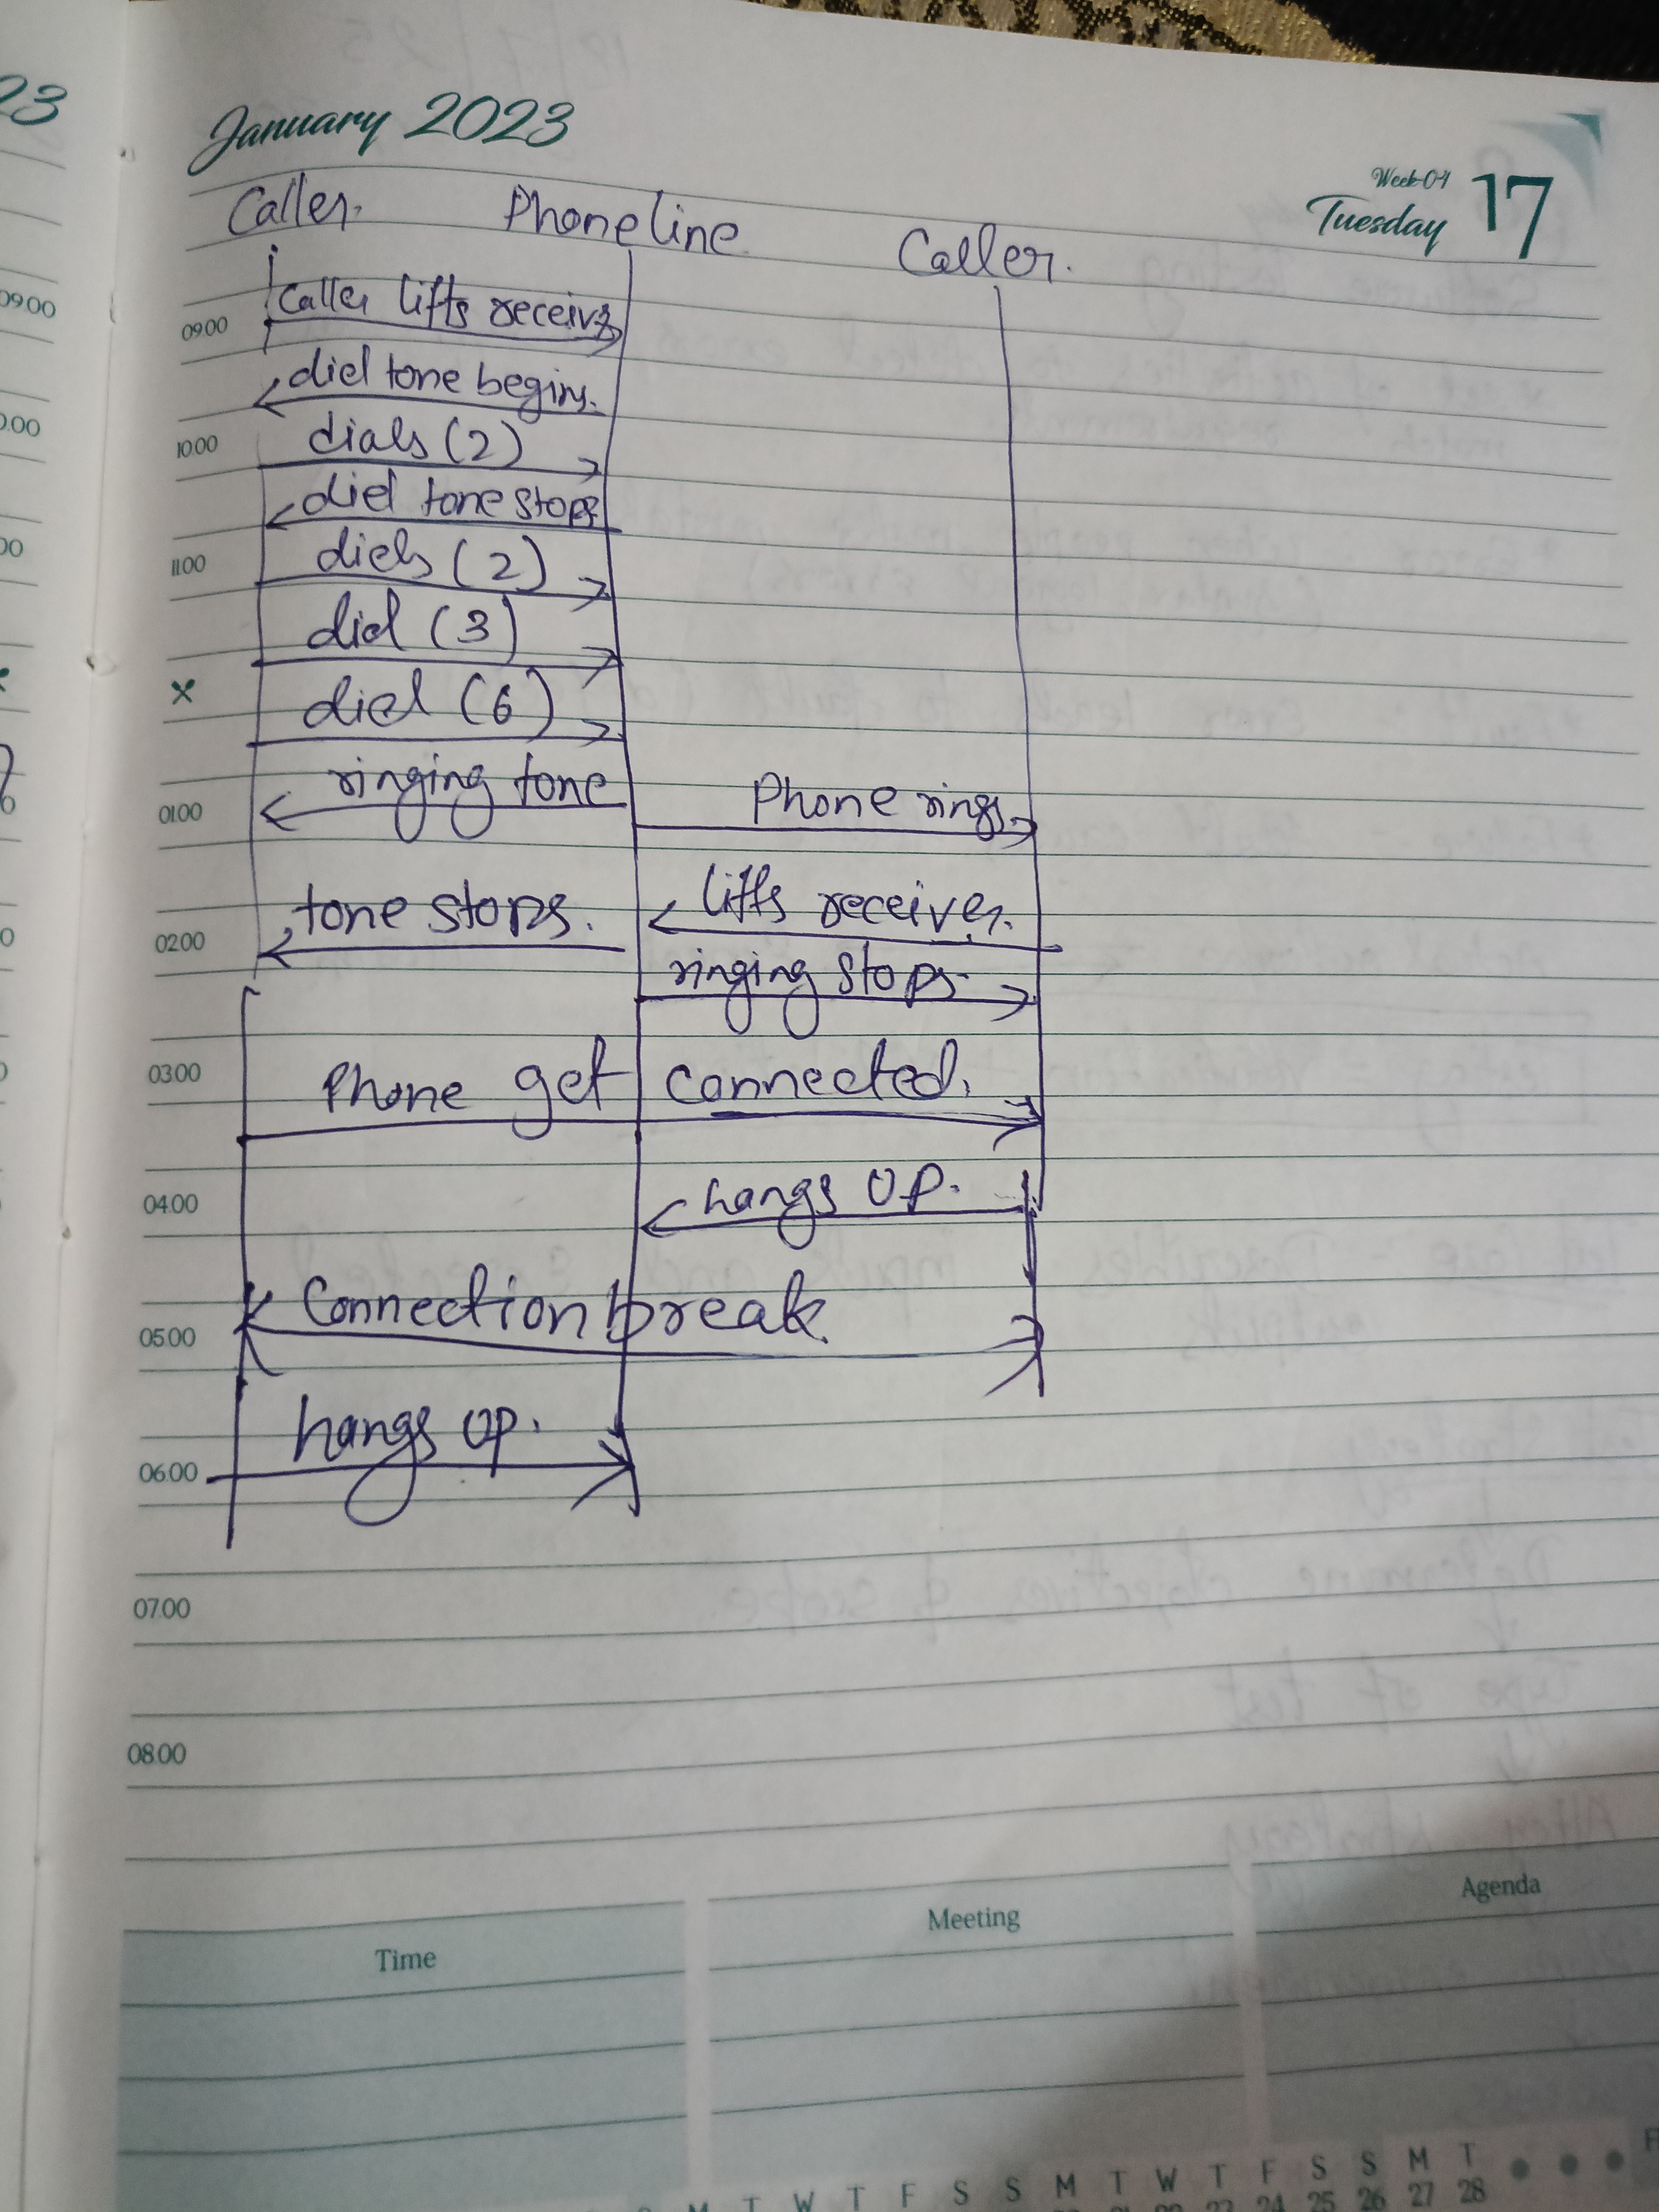 23
January 2023
Week-04
Tuesday 17
Caller. Phone line Caller.
09.00
09.00 Caller lifts receiver
diel tone begins.
10.00 dials (2)
diel tone stops
11.00 diels (2)
diel (3)
diel (6)
01.00 ringing tone Phone rings.
tone stops. lifts receiver.
02.00
ringing stops.
03.00 Phone get connected.
04.00 hangs up.
Connection break.
05.00
hangs up.
06.00
07.00
08.00
Time Meeting Agenda
M T W T F S S M T W T F S S M T
24 25 26 27 28